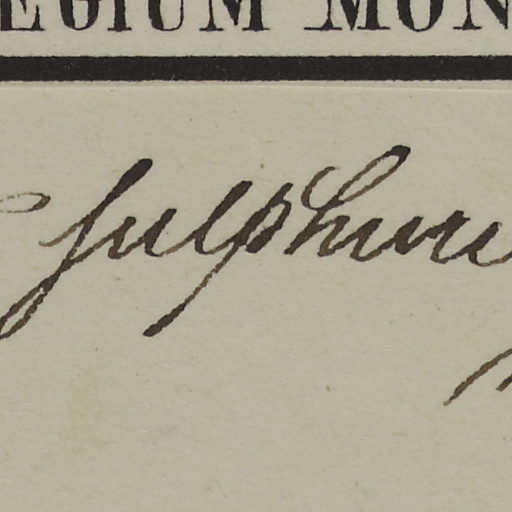 EGIUM MON
sulphure